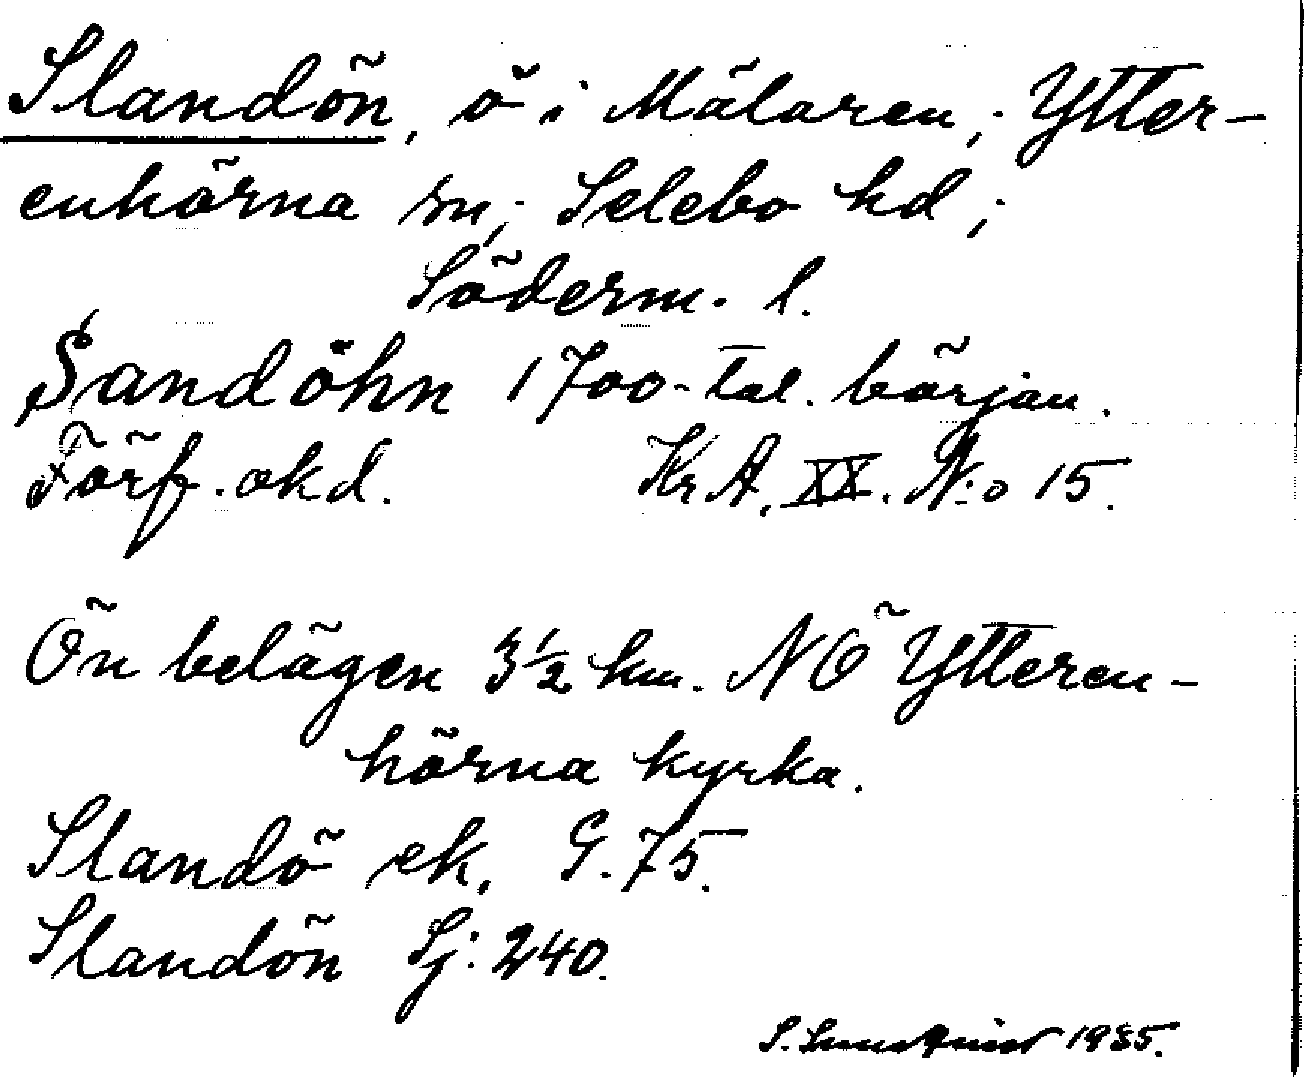 Slandön, ö i Mälaren; Ytter-
enhörna sn; Selebo hd;
Söderm. l.
Sandöhn 1700-tal. början.
Förf. okd. Kr A. XX. N:o 15.
Ön belägen 3 1/2 km. NÖ Ytteren-
hörna kyrka.
Slandö ek. G. 75.
Slandön Sj: 240.
S. 1935.